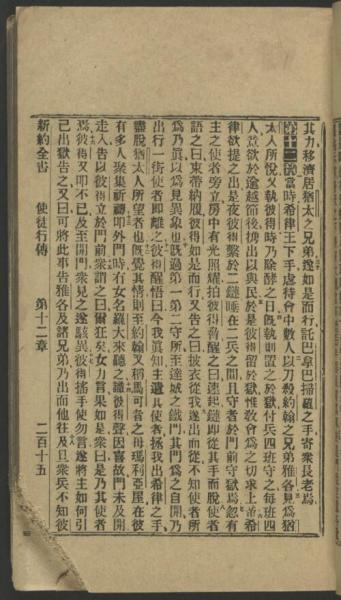 其力移濟居猶太之兄弟遂如是而行託巴拿巴掃羅之手寄衆長老焉
第十二章 當時希律王下手虐待會中數人以刀殺約翰之兄弟雅各見爲猶
太人所悅又執彼得時乃除酵之日旣執則置之於獄付兵四班守之每班四
人意欲於逾越節後携出以與民於是彼得留於獄惟敎會爲之切求上帝希
律欲提之出是夜彼得繫於二鏈睡在二兵之間且守者於門前守獄焉忽有
主之使者旁立房中有光照耀拍彼得脅醒之曰速起鏈卽從其手而脫使者
語之曰束帶納履彼得如是而行又告之曰披衣從我遂出而從不知使者所
爲乃眞以爲見異象也旣過第一第二守所至達城之鐵門其門爲之自開乃
出行一街使者卽離之彼得醒悟曰今我眞知主遣其使者拯我出希律之手
盡脫猶太人所望者也旣覺其情則至約翰又稱馬可者之母瑪利亞屋在彼
有多人聚集祈禱叩外門時有女名羅大來聽之識彼得聲因喜故門未及開
走入告以彼得立於門前衆謂之曰爾狂矣女力言果如是衆曰是乃其使者
焉彼得又叩不已及至開門衆見之遂駭異彼得搖手使勿言遂將主如何引
己出獄告之又曰可將此事告雅各及諸兄弟乃出而他往及旦衆兵不知彼
新約全書 使徒行傳 第十二章 二百十五